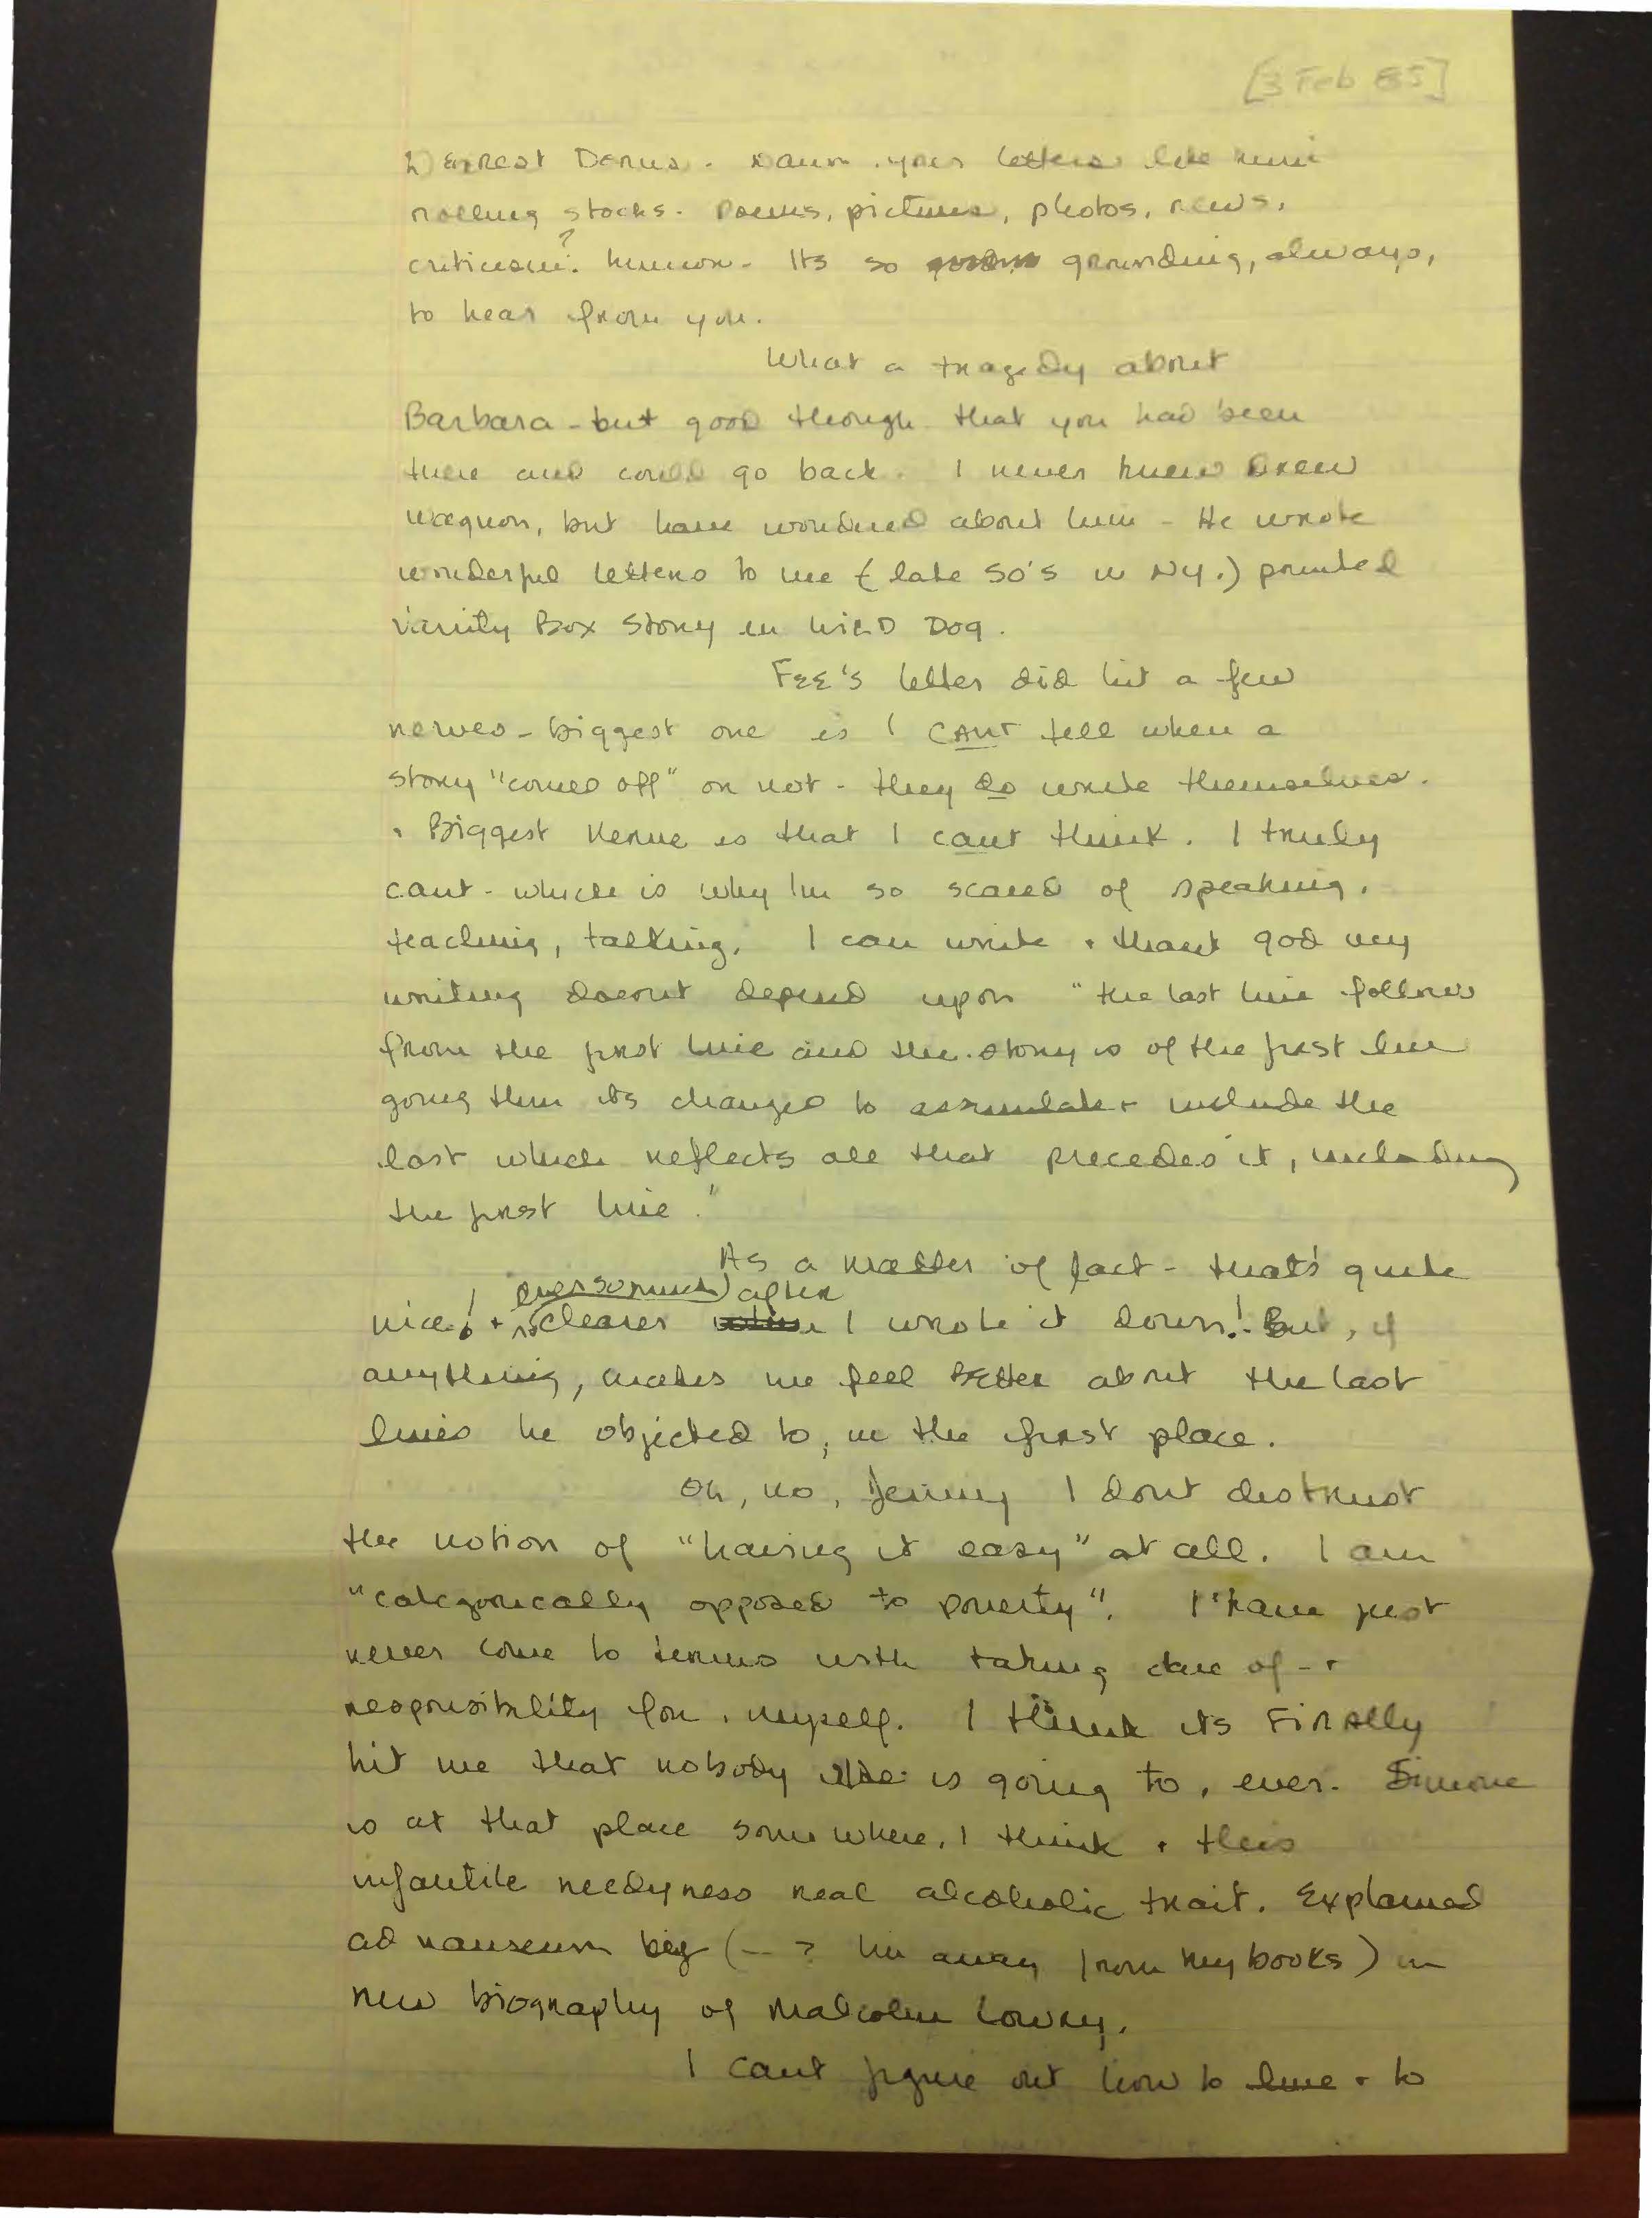 [3 Feb 85]
DEAREST Dorns. Damn. your letters like mini
rolling stocks. Poems, pictures, photos, news,
criticism? humor. Its so grounding, always,
to hear from you.
What a tragedy about
Barbara - but good though that you had been
there and could go back. I never knew Drew
Wagnon, but have wondered about him - He wrote
wonderful letters to me (late 50's in NY.) printed
Vanity Box Story in WILD DOG.
FEE'S letter did hit a few
nerves - biggest one is I CANT tell when a
story "comes off" or not - they do write themselves.
+ Biggest Nerve is that I cant think. I truly
cant - which is why Im so scared of speaking,
teaching, talking. I can write + thank god my
writing doesnt depend upon "the last line follows
from the first line and the story is of the first line
going thru its changes to assimilate + include the
last which reflects all that precedes it, including
the first line."
As a matter of fact - that's quite
nice! + ever so much clearer after I wrote it down! But, if
anything, makes me feel BEtter about the last
lines he objected to, in the first place.
Oh, no, Jenny I dont distrust
the notion of "having it easy" at all. I am
"categorically opposed to poverty". I have just
never come to terms with taking care of - +
responsibility for, myself. I think its FinAlly
hit me that nobody else is going to, ever. Simone
is at that place somewhere, I think + this
infantile needyness real alcoholic trait. Explained
ad nauseum by (— ? Im away from my books) in
new biography of Malcolm Lowry.
I cant figure out how to live + to